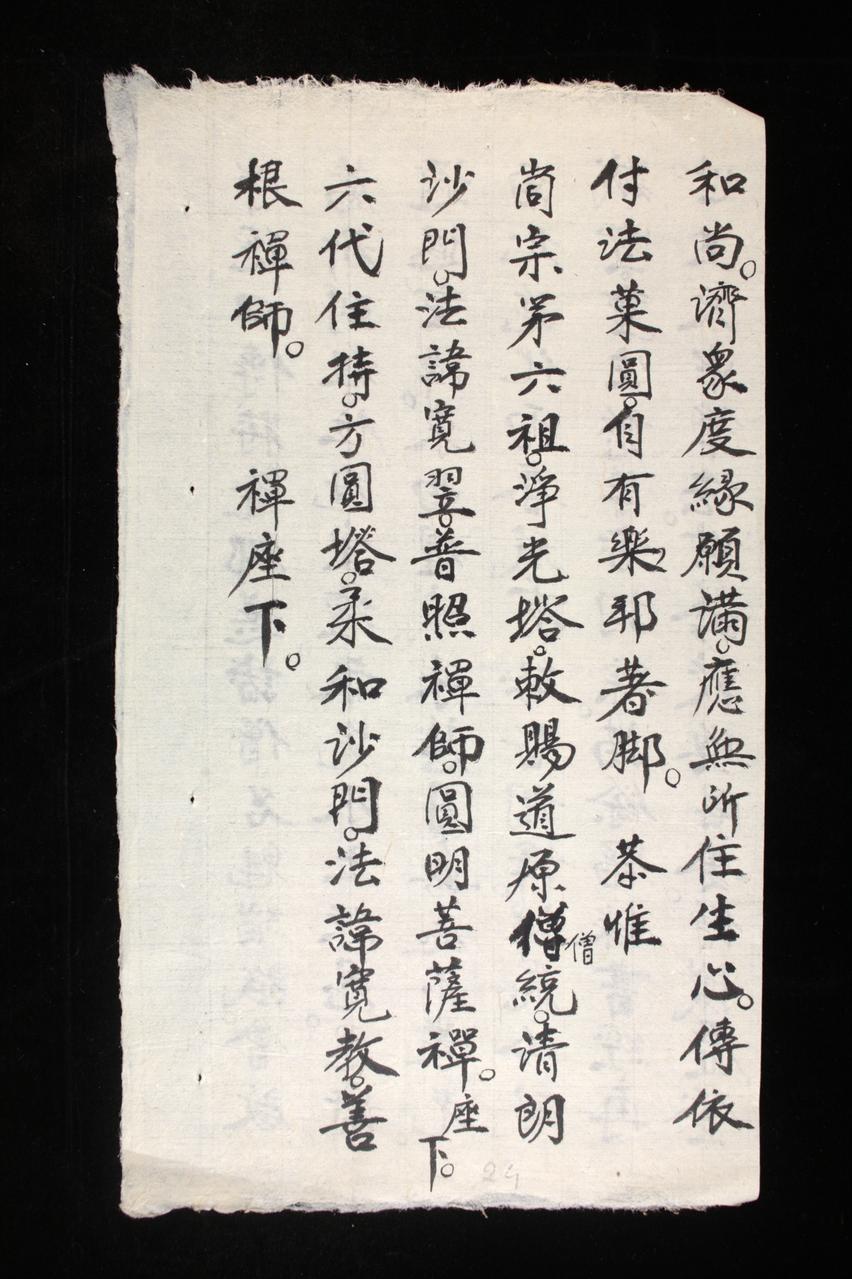 和尚。濟衆度緣願滿。應無所住生心。傳依
付法菓圓。自有樂邦著脚。 恭惟
尚宗第六祖。淨光塔。敕賜道原僧統。清朗
僧
沙門。法諱寬翌。普照禪師。圓明菩薩禪。座下。
六代住持。方圓塔。柔和沙門。法諱寬教。善
根禪師。 禪座下。
24